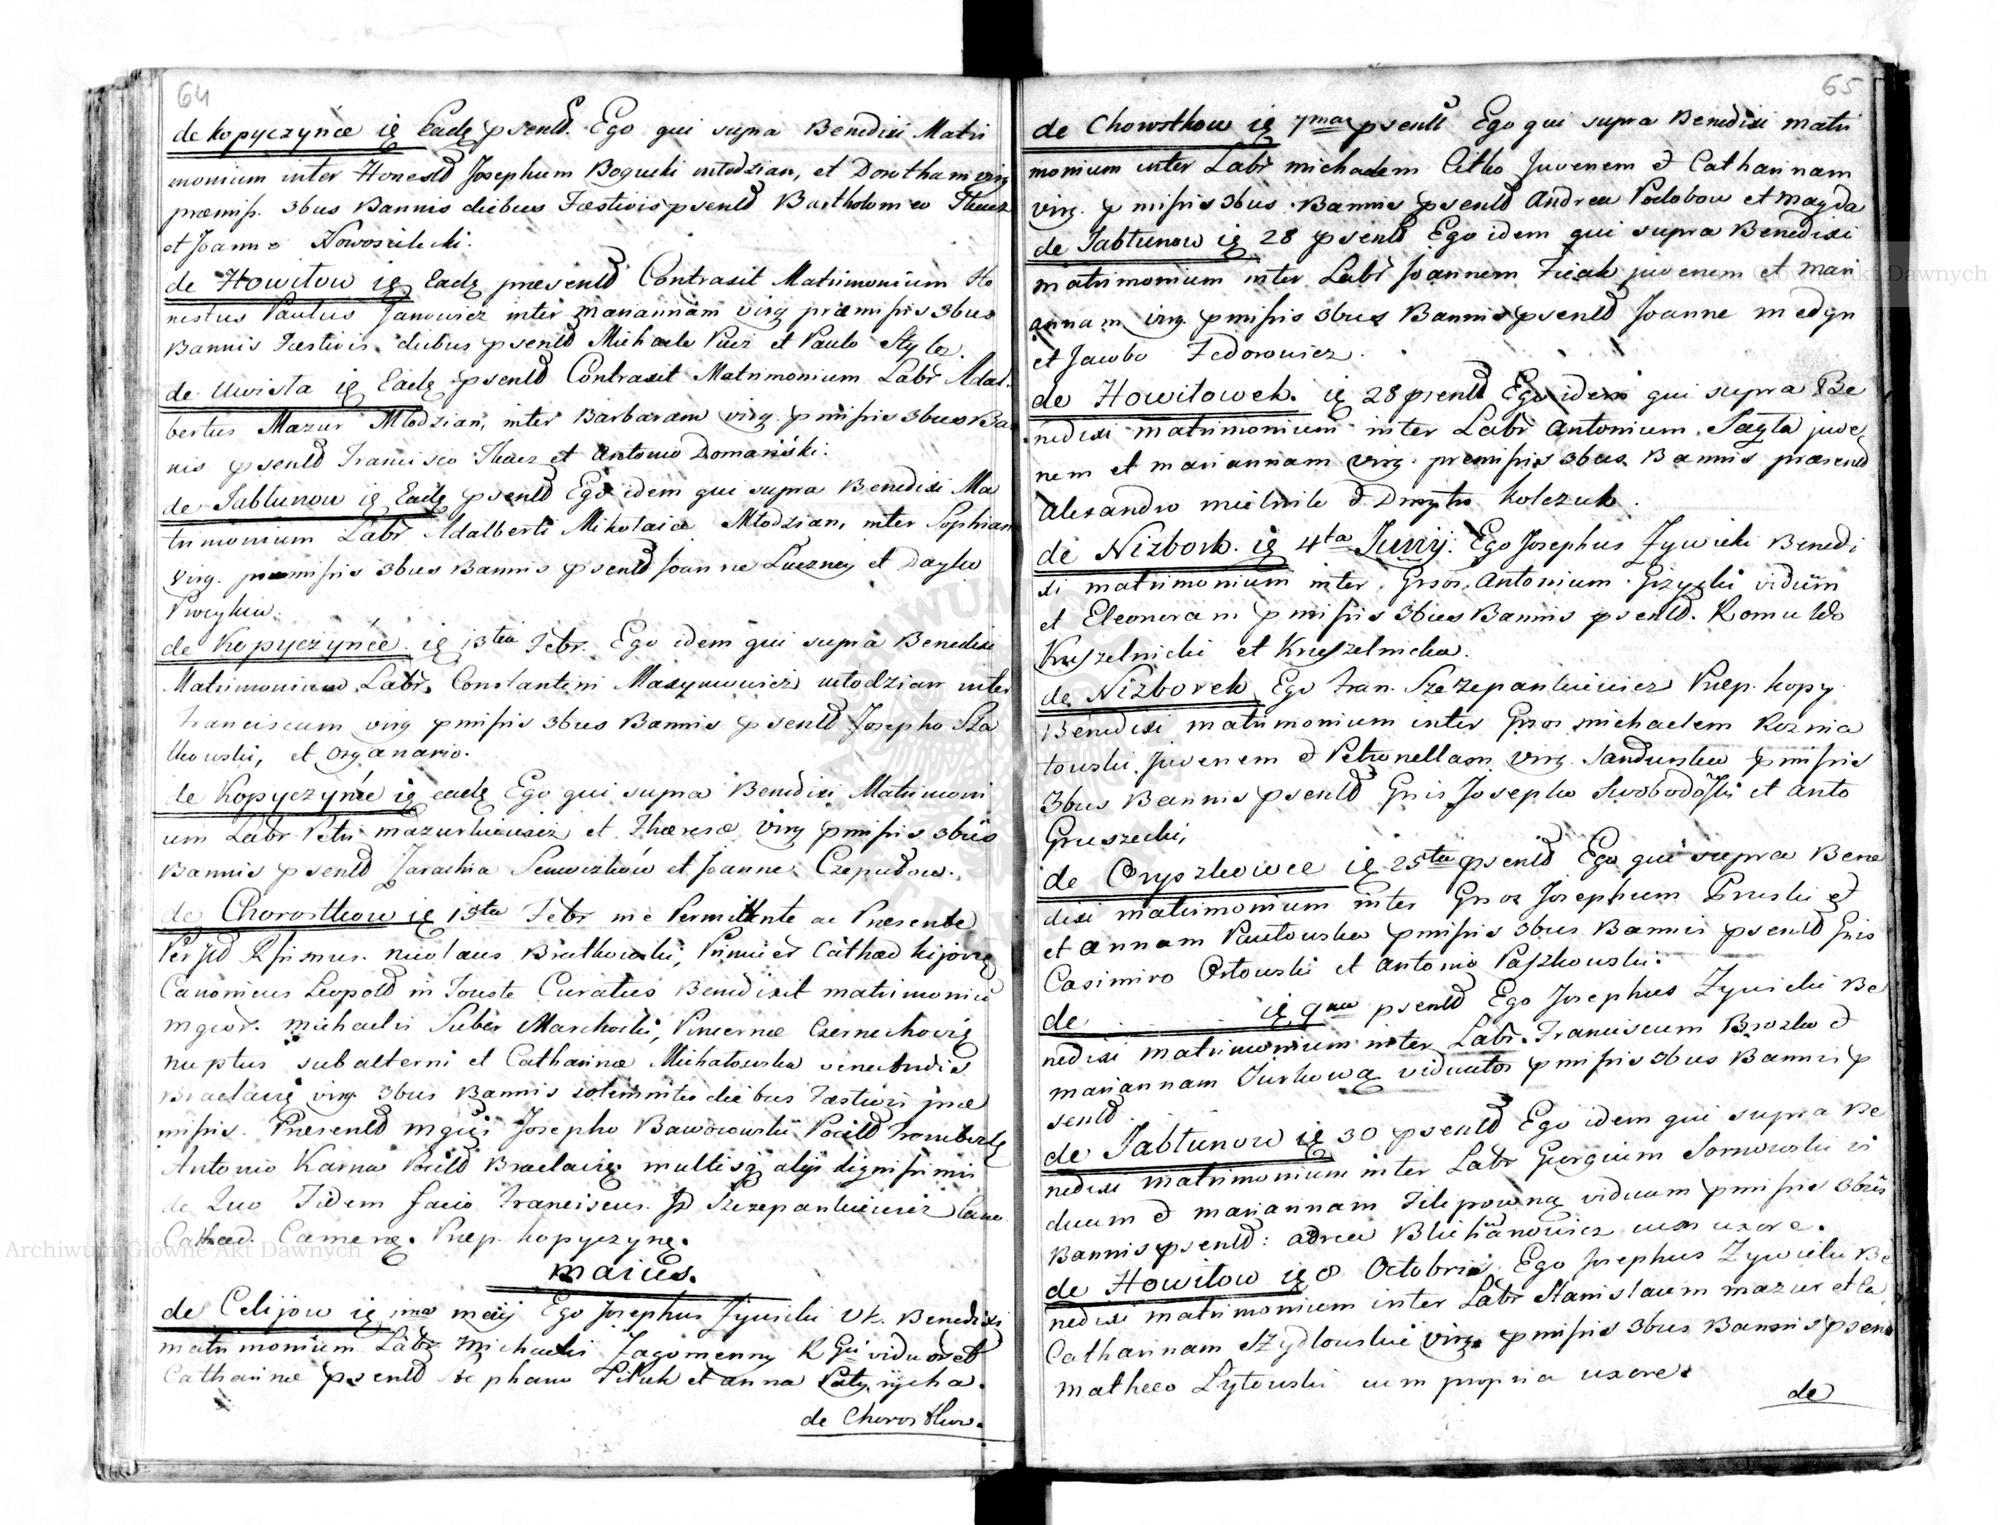 64
de Kopyczynce ię Eadę pსentb. Ego qui supra Benedixi Matri
monium inter Honestb Josephum Bogucki młodzian, et Dorotham virg
præmiss. 3bus Bannis diebus Fæstivis psentb Bartholomeo Tkacz
et Joanne Nowosielecki.
de Howilow ię Eadę præsentb Contraxit Matrimonium Ho
nestus Paulus Janowicz inter Mariannam virg præmissis 3bus
Bannis Fæstivis diebus psentb Michaele Puiz et Paulo
de Uwisla ię Eadę psentb Contraxit Matrimonium Labr Adal
bertus Mazur Młodzian, inter Barbaram virg. pmissis 3bus Ban
nis psentb Francisco Tkacz et Antonio Domański.
de Jabłunow ię Eadę psentb Ego idem qui supra Benedixi Ma
trimonium Labr Adalberti Mikołaia Młodzian, inter Sophiam
virg. præmissis 3bus Bannis psentb Joanne Łuczney et Daylo
de Kopyczyńce ię 13tia Febr. Ego idem qui supra Benedixi
Matrimonium Labr. Constantini Maxymowicz młodzian inter
Franciscum virg pmissis 3bus Bannis psentb Josepho Sza
tkowski, et Organario.
de Kopyczyńce ię eadę Ego qui supra Benedixi Matrimoni
um Labr Petri Mazurkiewicz et Theresæ virg pmissis 3bus
Bannis psentb Jarachia et Joanne Czepudow.
de Chorostkow ię 13tia Febr me Permittente ac Præsente
Nicolaus Bratkowski, Cathed Kijovię
Canonicus Leopold in Touste Curatus Benedixit matrimoniu
mgcor. Michaelis Suber Marchocki, Pincernæ Czernechovię
nuptus subalterni et Catharinæ Michałowska
Braclavię virg 3bus Bannis solemnitis diebus Fæstivis præ
missis. Præsentb mgcis Josepho Baworowski Pocilb Trembovlę
Antonio Karna Pocilb Braclavię multisq alijs dignissimis
de Quo Fidem facio Franciscus Szczepankiewicz Cano
Cathed. Camenę. Præp. Kopyczynę.
Maius.
de Celijow ię ima maij Ego Josephus Zywicki Vk. Benedixi
matrimonium Labr Michaelis Zagomenny viduor et
Catharinæ psentb Stephano Pituk et Anna
de Chorostkow.
65
de Chorostkow ię 7mae psentb Ego qui supra Benedixi matri
monium inter Labr michaelem Citko Juvenem et Catharinam
virg. pmissis 3bus Bannis psentb Andrea Podobow et Magda
de Jabłunow ię 28 psentb Ego idem qui supra Benedixi
matrimonium inter Labr Joannem Ficak juvenem et Mari
annam virg. pmissis 3bus Bannis psentb Joanne medyn
et Jacobo Fedorowicz.
de Howilowek. ię 28 psentb Ego idem qui supra Be
nedixi matrimonium inter Labr Antonium juve
nem et mariannam virg. premissis 3bus Bannis præsentb
Alexandro mielnik et Dmytro Kolczuk.
de Nizbork. ię 4ta Junij. Ego Josephus Zywicki Benedi
xi matrimonium inter Gnsos Antonium Gizycki viduum
et Eleonoram pmissis 3bus Bannis psentb. Romualdo
Kruszelnicki et Kruszelnicka.
de Nizborek Ego Fran. Szczepankiewicz Præp. Kopy.
Benedixi matrimonium inter Gnsos michaelem Roznia
towski juvenem et Petronellam virg. Sandurska pmissis
3bus Bannis psentb Gnis Josepho Swobodoski et Anto
Gruszecki,
de Oryszkowce ię 25ta psentb Ego qui supra Bene
dixi matrimonium inter Gnsos Josephum Pruski et
et Annam Pawłowska pmissis 3bus Bannis psentb Gnis
Casimiro Orłowski et Antonio Paszkowski.
de ię 9na psentb Ego Josephus Zywicki Be
nedixi matrimonium inter Labr. Franciscum Brozko et
mariannam Jurkową viduatos pmissis 3bus Bannis p
sentb.
de Jabłunow ię 30 psentb Ego idem qui supra Be
nedixi matrimonium inter Labr Georgium Sornowski vi
duum et mariannam Filipowną viduam pmissis 3bus
Bannis psentb: Adrea Blichanowicz cum uxore.
de Howilow ię 8 Octobris. Ego Josephus Zywicki Be
nedixi matrimonium inter Labr Stanislaum Mazur et Ca
Catharinam Szydłowski virg. pmissis 3bus Bannis psent
Matheeo Zytowski cum propria uxore.
de
Archiwum Główne Akt Dawnych